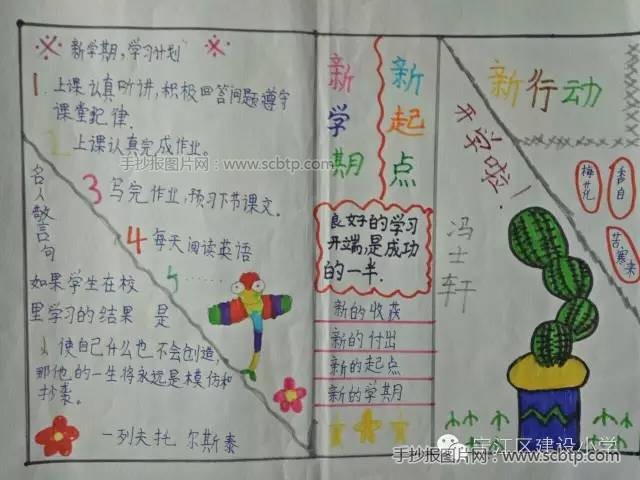 新学期,学习计划
1.上课认真听讲,积极回答问题遵守
课堂纪律.
2上课认真完成作业。
手抄报图片网:www.scbtp.com
3写完作业,预习下节课文.
4每天阅读英语
5……
名人敬言句
如果学生在校
里学习的结果 是
使自己什么也不会创造,
那他的一生将永远是模仿和
抄袭。
一列夫托 尔斯泰
新学期
新起点
良好的学习
开端,是成功
的一半.
新的收茂
新的付出
新的起点
新的学期
新行动
开学啦!
冯士轩
梅花
香自
苦寒来
宝江区建设小学
手抄报图片网:www.scbtp.com